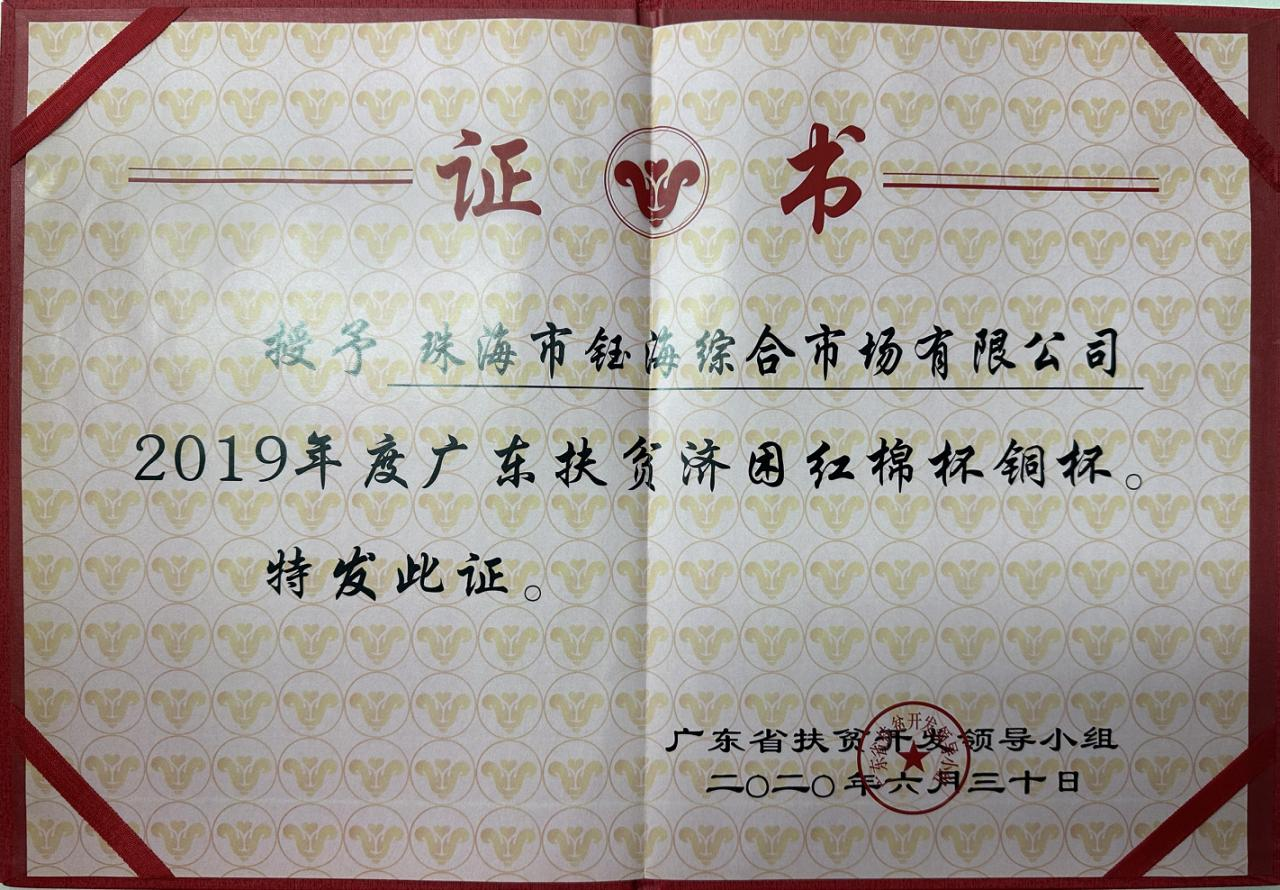 证书
授予 珠海市钰海综合市场有限公司
2019年度广东扶贫济困红棉杯铜杯。
特发此证。
广东省扶贫开发领导小组
二〇二〇年六月三十日